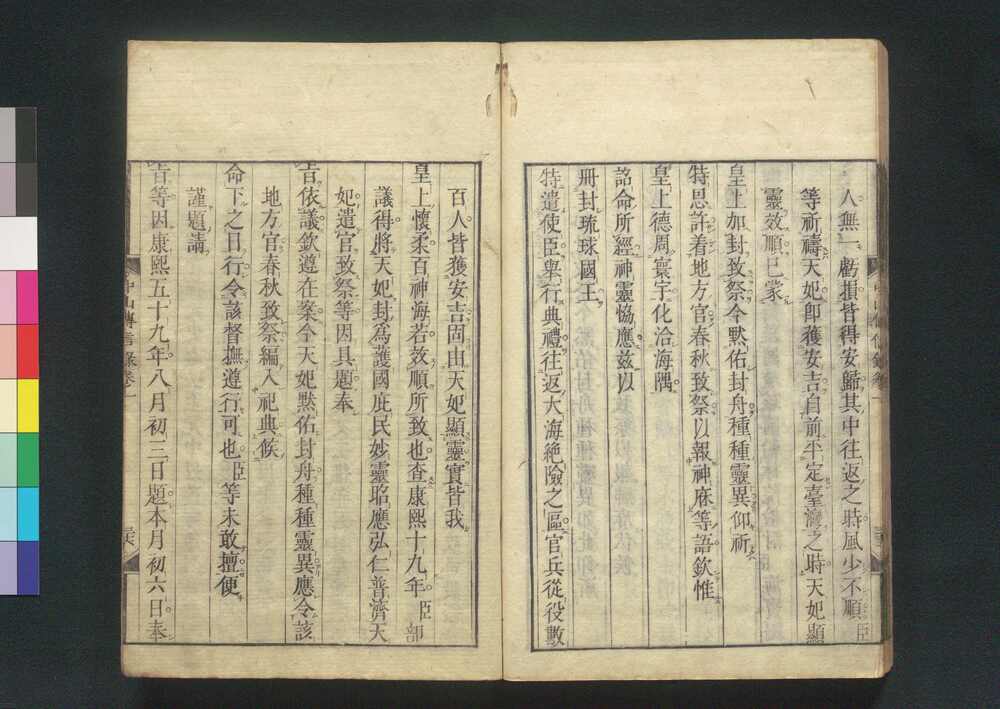 人無一虧損皆得安歸其中往返之時風少不順臣
等祈禱天妃卽獲安吉自前平定臺灣之時天妃顯
靈效順已蒙
皇上加封致祭今默佑封舟種種靈異仰祈
特恩許着地方官春秋致祭以報神庥等語欽惟
皇上德周寰宇化洽海隅
詔命所經神靈恊應兹以
冊封琉球國王
特遣使臣舉行典禮往返大海絶險之區官兵從役數
百人皆獲安吉固由天妃顯靈實皆我
皇上懷柔百神海若效順所致也查康熙十九年臣部
議得將天妃封爲護國庇民妙靈昭應弘仁普濟天
妃遣官致祭等因具題奉
旨依議欽遵在案今天妃默佑封舟種種靈異應令該
地方官春秋致祭編入祀典候
命下之日行令該督撫遵行可也臣等未敢擅便
謹題請
旨等因康熙五十九年八月初三日題本月初六日奉
中山傳信錄卷一